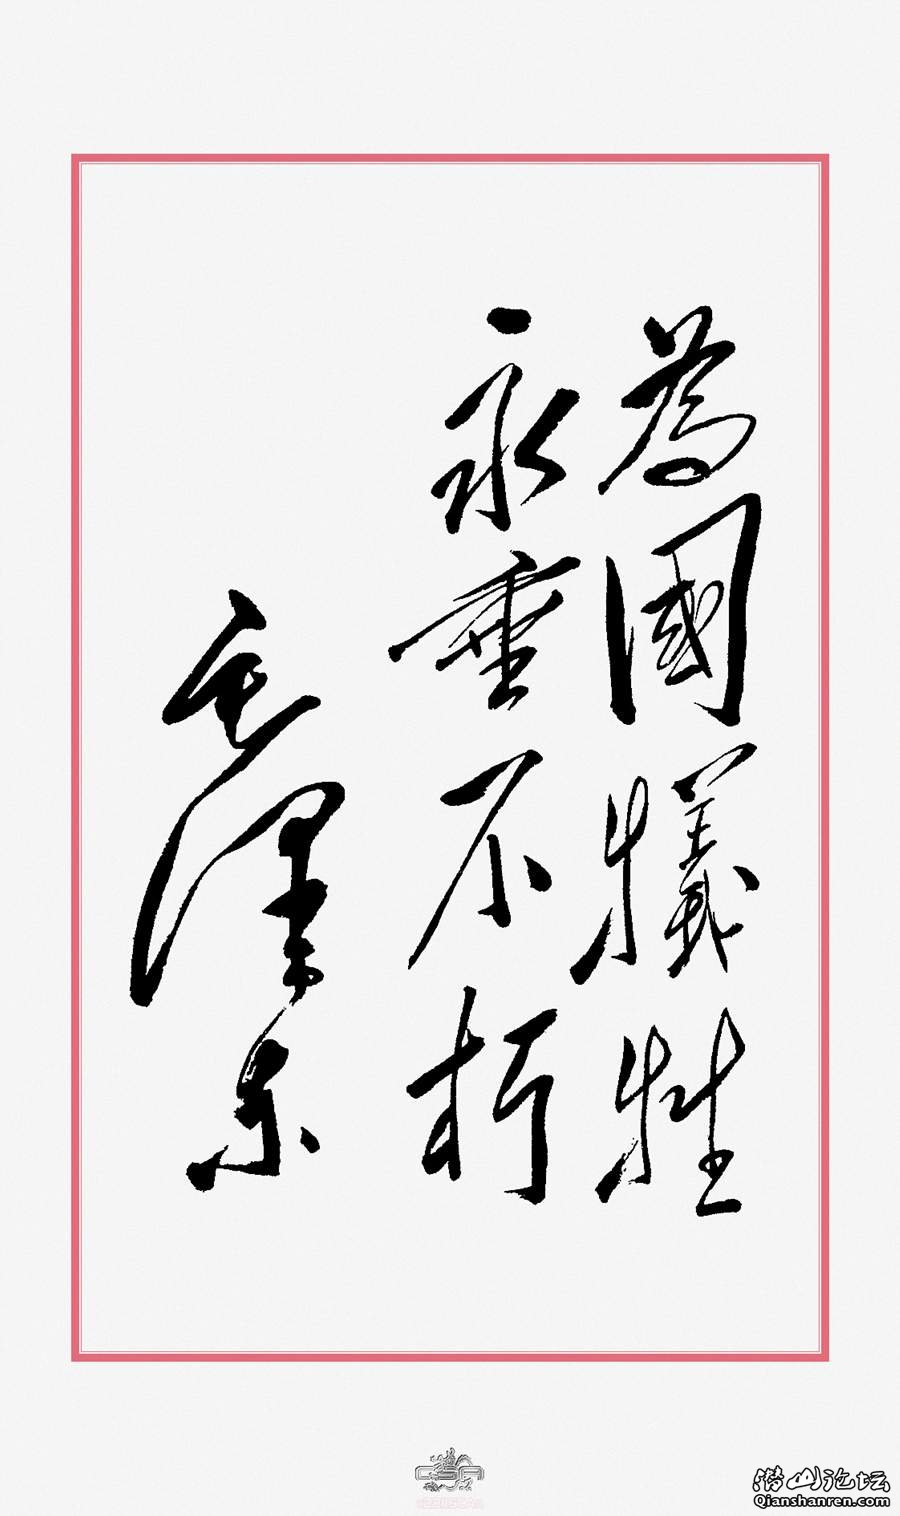 為國犧牲
永垂不朽
毛澤东
CSA
潜山论坛
Qianshanren.com